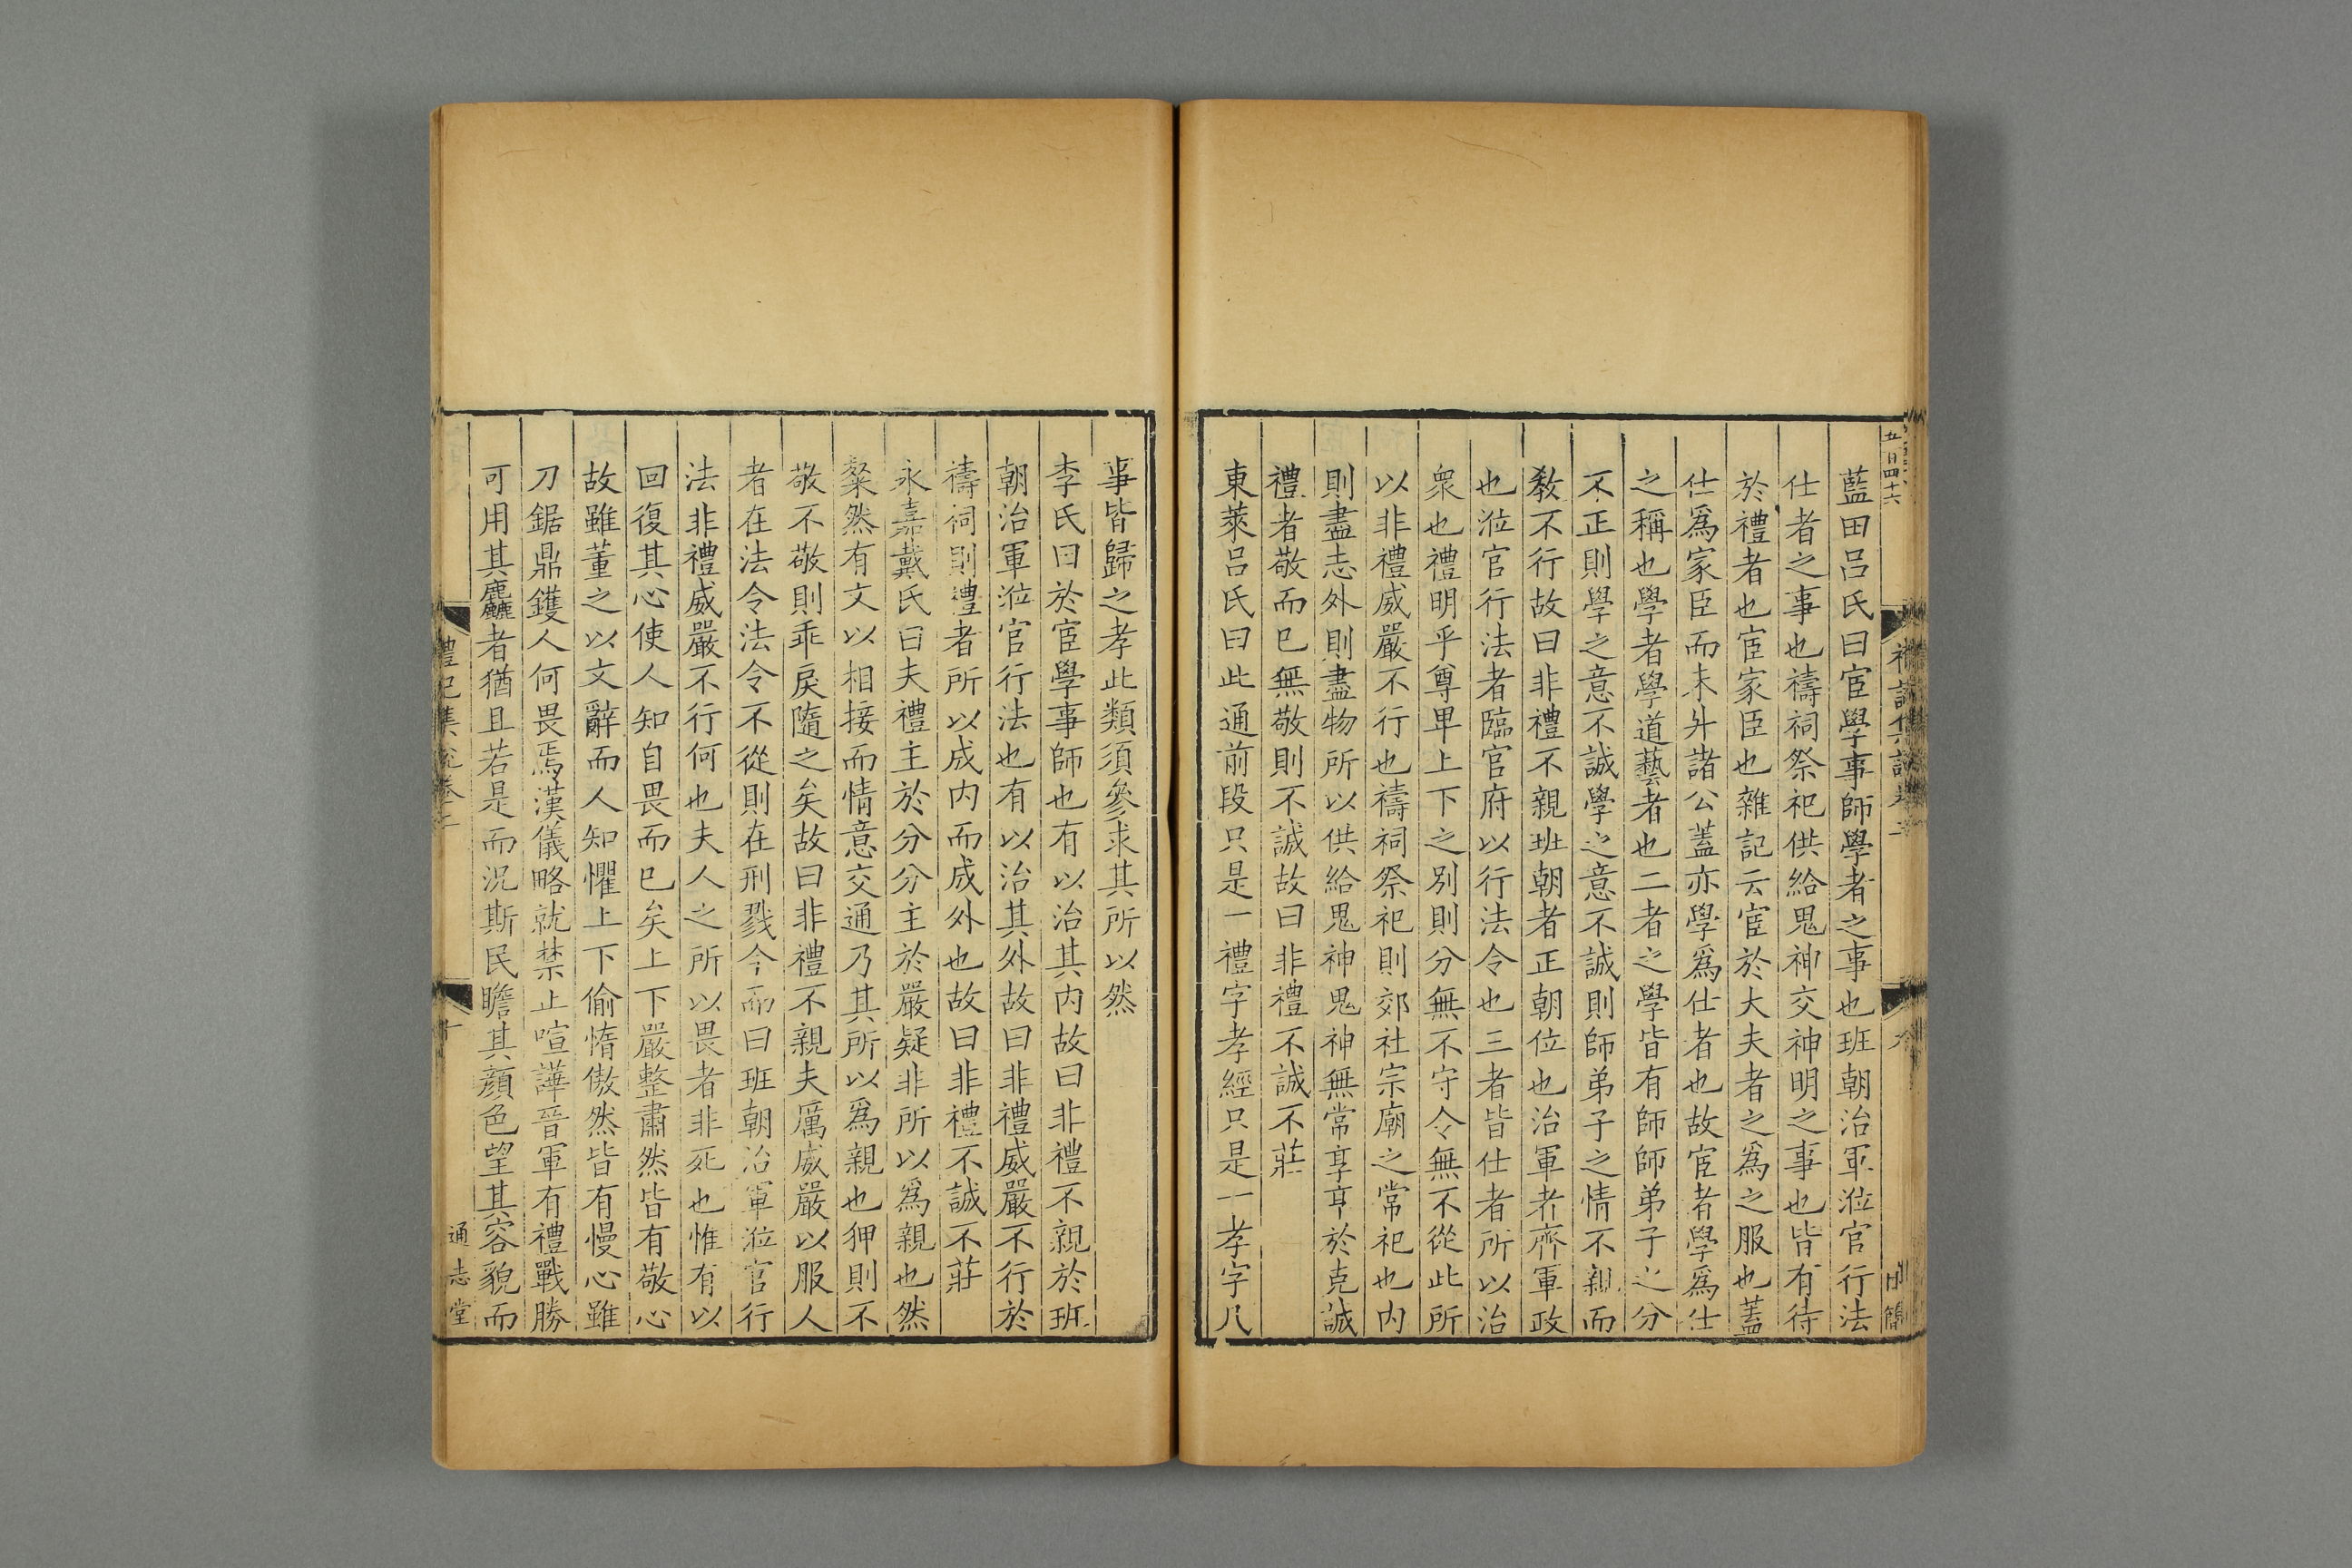 五百四十六
禮記集說卷二
藍田呂氏曰宦學事師學者之事也班朝治軍涖官行法
仕者之事也禱祠祭祀供給鬼神交神明之事也皆有待
於禮者也宦家臣也雜記云宦於大夫者之爲之服也蓋
仕爲家臣而未升諸公蓋亦學爲仕者也故宦者學爲仕
之稱也學者學道藝者也二者之學皆有師師弟子之分
不正則學之意不誠學之意不誠則師弟子之情不親而
敎不行故曰非禮不親班朝者正朝位也治軍者齊軍政
也涖官行法者臨官府以行法令也三者皆仕者所以治
衆也禮明乎尊卑上下之別則分無不守令無不從此所
以非禮威嚴不行也禱祠祭祀則郊社宗廟之常祀也內
則盡志外則盡物所以供給鬼神鬼神無常享享於克誠
禮者敬而已無敬則不誠故曰非禮不誠不莊
東萊呂氏曰此通前段只是一禮字孝經只是一孝字凡
事皆歸之孝此類須參求其所以然
李氏曰於宦學事師也有以治其內故曰非禮不親於班
朝治軍涖官行法也有以治其外故曰非禮威嚴不行於
禱祠則禮者所以成內而成外也故曰非禮不誠不莊
永嘉戴氏曰夫禮主於分分主於嚴疑非所以爲親也然
粲然有文以相接而情意交通乃其所以爲親也狎則不
敬不敬則乖戾隨之矣故曰非禮不親夫厲威嚴以服人
者在法令法令不從則在刑戮今而曰班朝治軍涖官行
法非禮威嚴不行何也夫人之所以畏者非死也惟有以
回復其心使人知自畏而已矣上下嚴整肅然皆有敬心
故雖董之以文辭而人知懼上下偷惰傲然皆有慢心雖
刀鋸鼎鑊人何畏焉漢儀略就禁止喧譁晉軍有禮戰勝
可用其麤者猶且若是而況斯民瞻其顏色望其容貌而
禮記集說卷二
十
通志堂